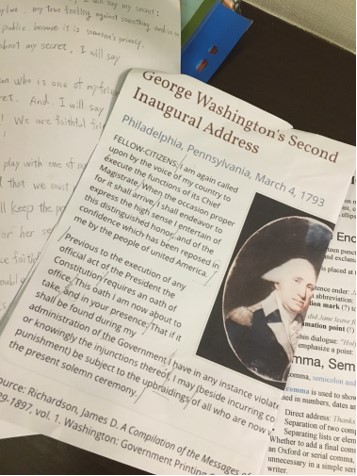 I will say my secret:
my true feeling against something and so on
public. because it is someone's privacy.
about my secret. I will say
who is one of my
And. I will say
We are faithful
play with one of
that we must
keep the
or her
George Washington's Second
Inaugural Address
Philadelphia, Pennsylvania, March 4, 1793
FELLOW-CITIZENS: I am again called
upon by the voice of my country to
execute the functions of its Chief
Magistrate. When the occasion proper
for it shall arrive, I shall endeavor to
express the high sense I entertain of
this distinguished honor, and of the
confidence which has been reposed in
me by the people of united America.
Previous to the execution of any
official act of the President the
Constitution requires an oath of
office. This oath I am now about to
take, and in your presence: That if it
shall be found during my
administration of the Government I have in any instance violate
or knowingly the injunctions thereof, I may (beside incurring co
punishment) be subject to the upbraidings of all who are now
the present solemn ceremony.
ource: Richardson, James D. A Compilation of the Messages of
9-1897, vol. 1. Washington: Government Printing
End
tence ender:
abbreviation
tion mark (?) to
did Jane leave
mation point (!)
hin dialogue: "Holy
emphasize a point:
mma, Sem
comma, semicolon and
comma is used to show
sed in numbers, dates an
Direct address: Thanks
Separation of two comp
Separating lists or elem
Whether to add a final com
an Oxford or serial comma,
unnecessary in a simple se
writer.